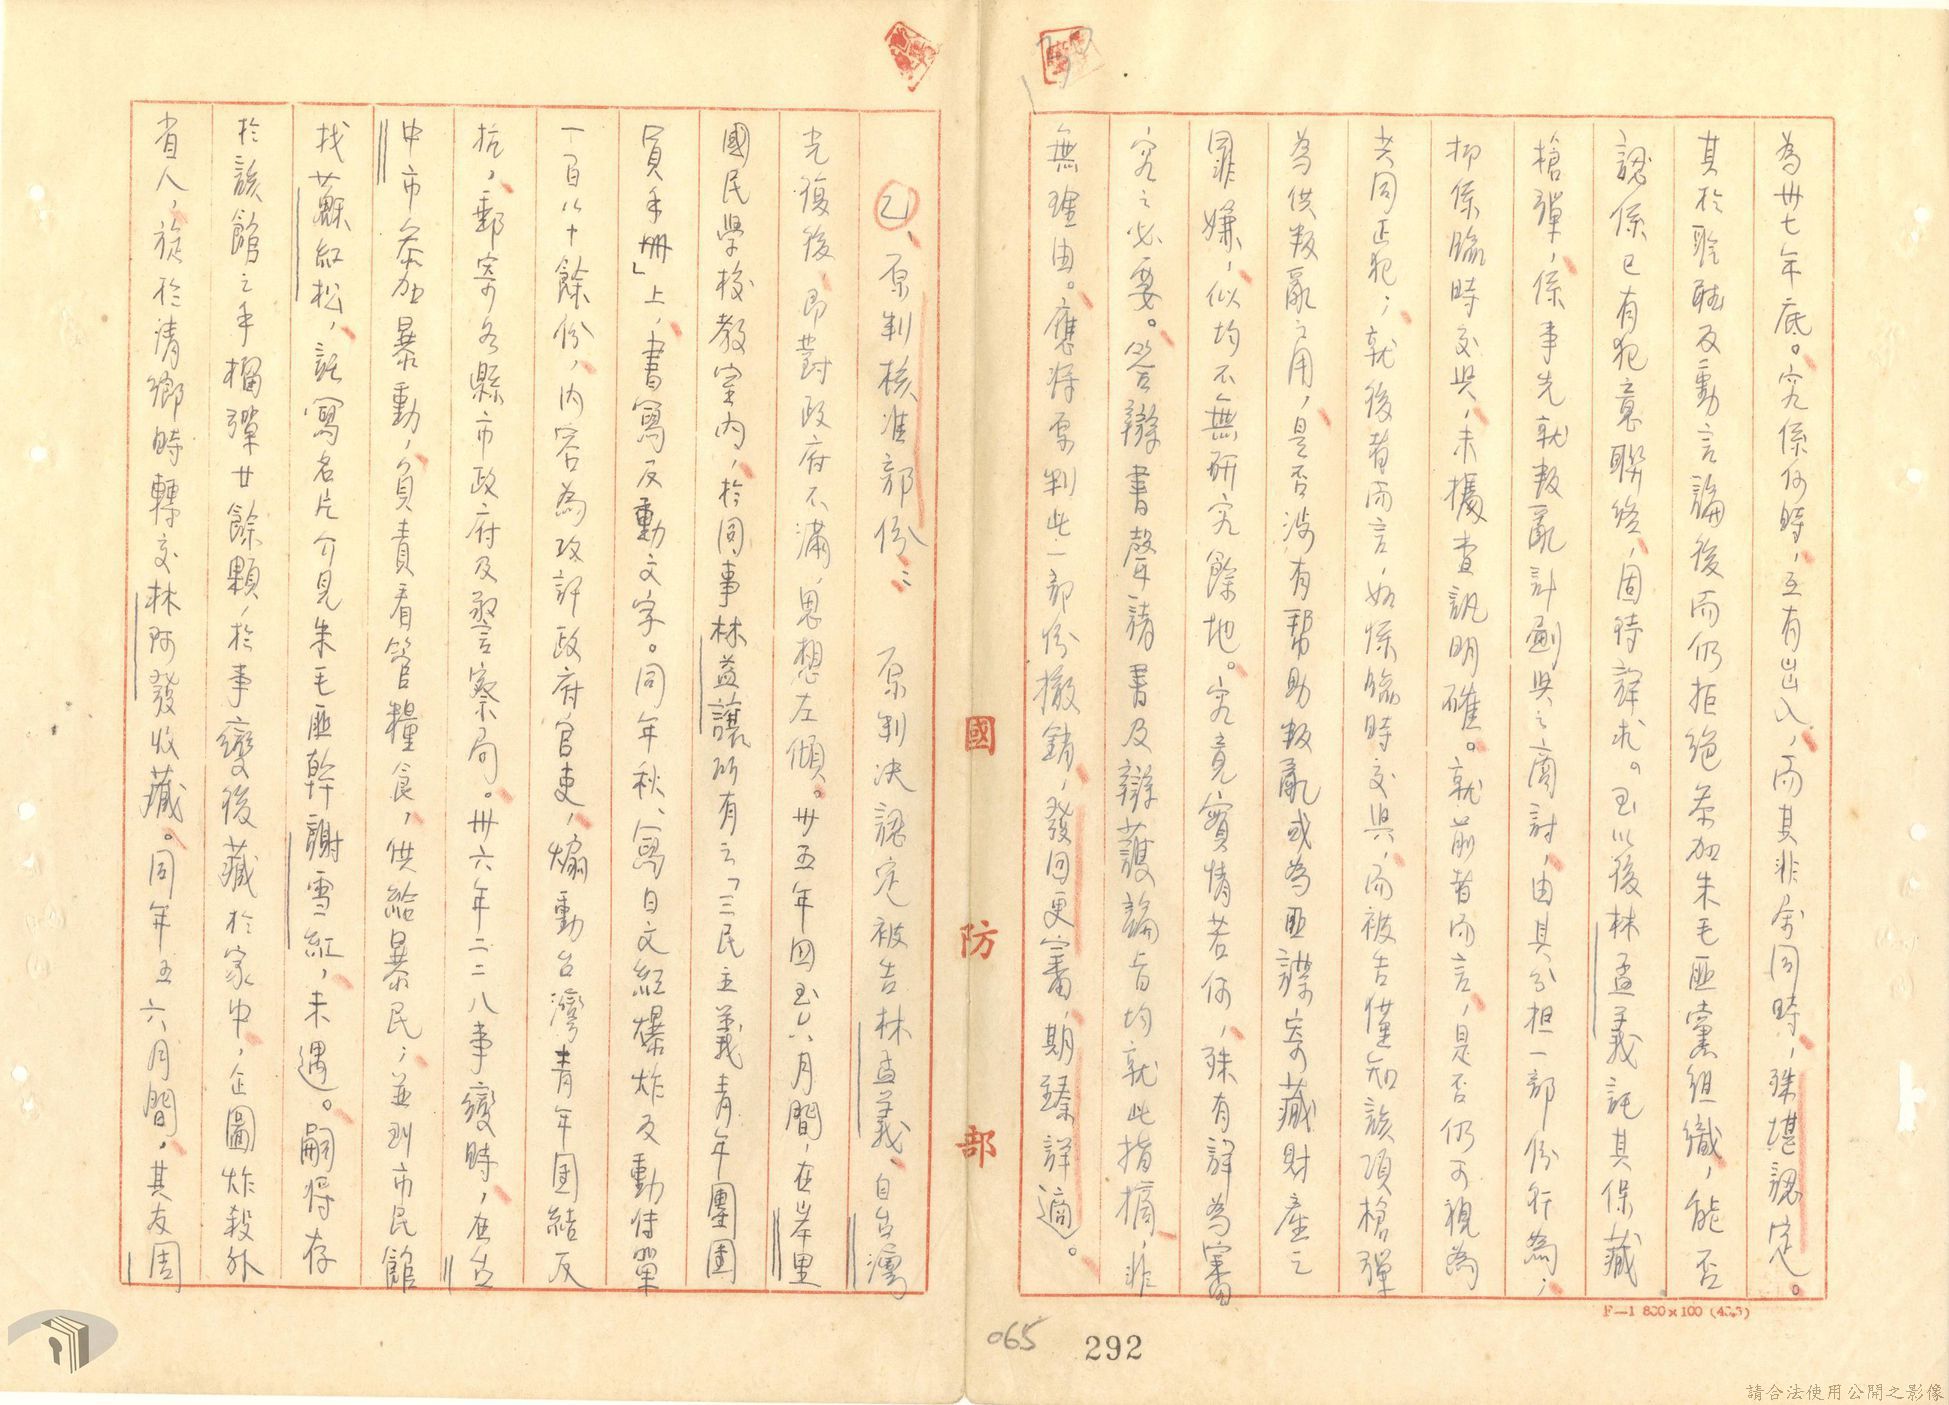 為卅七年底。究係何時，互有出入，而其非余同時，殊堪認定。
其於聆聽反動言論後而仍拒絕參加朱毛匪黨組織，能否
認係已有犯意聯絡，固待詳求。至以後林孟義託其保藏
槍彈，係事先就叛亂計劃與之商討，由其分担一部份行為；
抑係臨時交與，未據查訊明確。就前者而言，是否仍可視為
共同正犯；就後者而言，如係臨時交與，而被告僅知該項槍彈
為供叛亂之用，是否涉有幫助叛亂或為匪諜寄藏財產之
罪嫌，似均不無研究餘地。究竟實情若何，殊有詳為審
究之必要。答辯書聲請書及辯護論旨均就此指摘，非
無理由。應將原判此一部份撤銷，發回更審，期臻詳適。
乙、原判核准部份：原判決認定被告林孟義，自台灣
光復後，即對政府不滿，思想左傾。卅五年國至六月間，在岸里
國民學校教室內，於同事林益謙所有之「三民主義青年團團
員手冊」上，書寫反動文字。同年秋，寫日文紅爆炸反動傳單
一百八十餘份，內容為攻訐政府官吏，煽動台灣青年團結反
抗，郵寄各縣市政府及警察局。卅六年二二八事變時，在台
中市參加暴動，負責看管糧食，供給暴民；並到市民館
找蘇紅松，託寫名片介見朱毛匪幹謝雪紅，未遇。嗣將存
於該館之手榴彈廿餘顆，於事變後藏於家中，企圖炸殺外
省人，旋於清鄉時轉交林阿發收藏。同年五六月間，其友周
國防部
F—1 800×100 (43.3)
065
292
請合法使用公開之影像